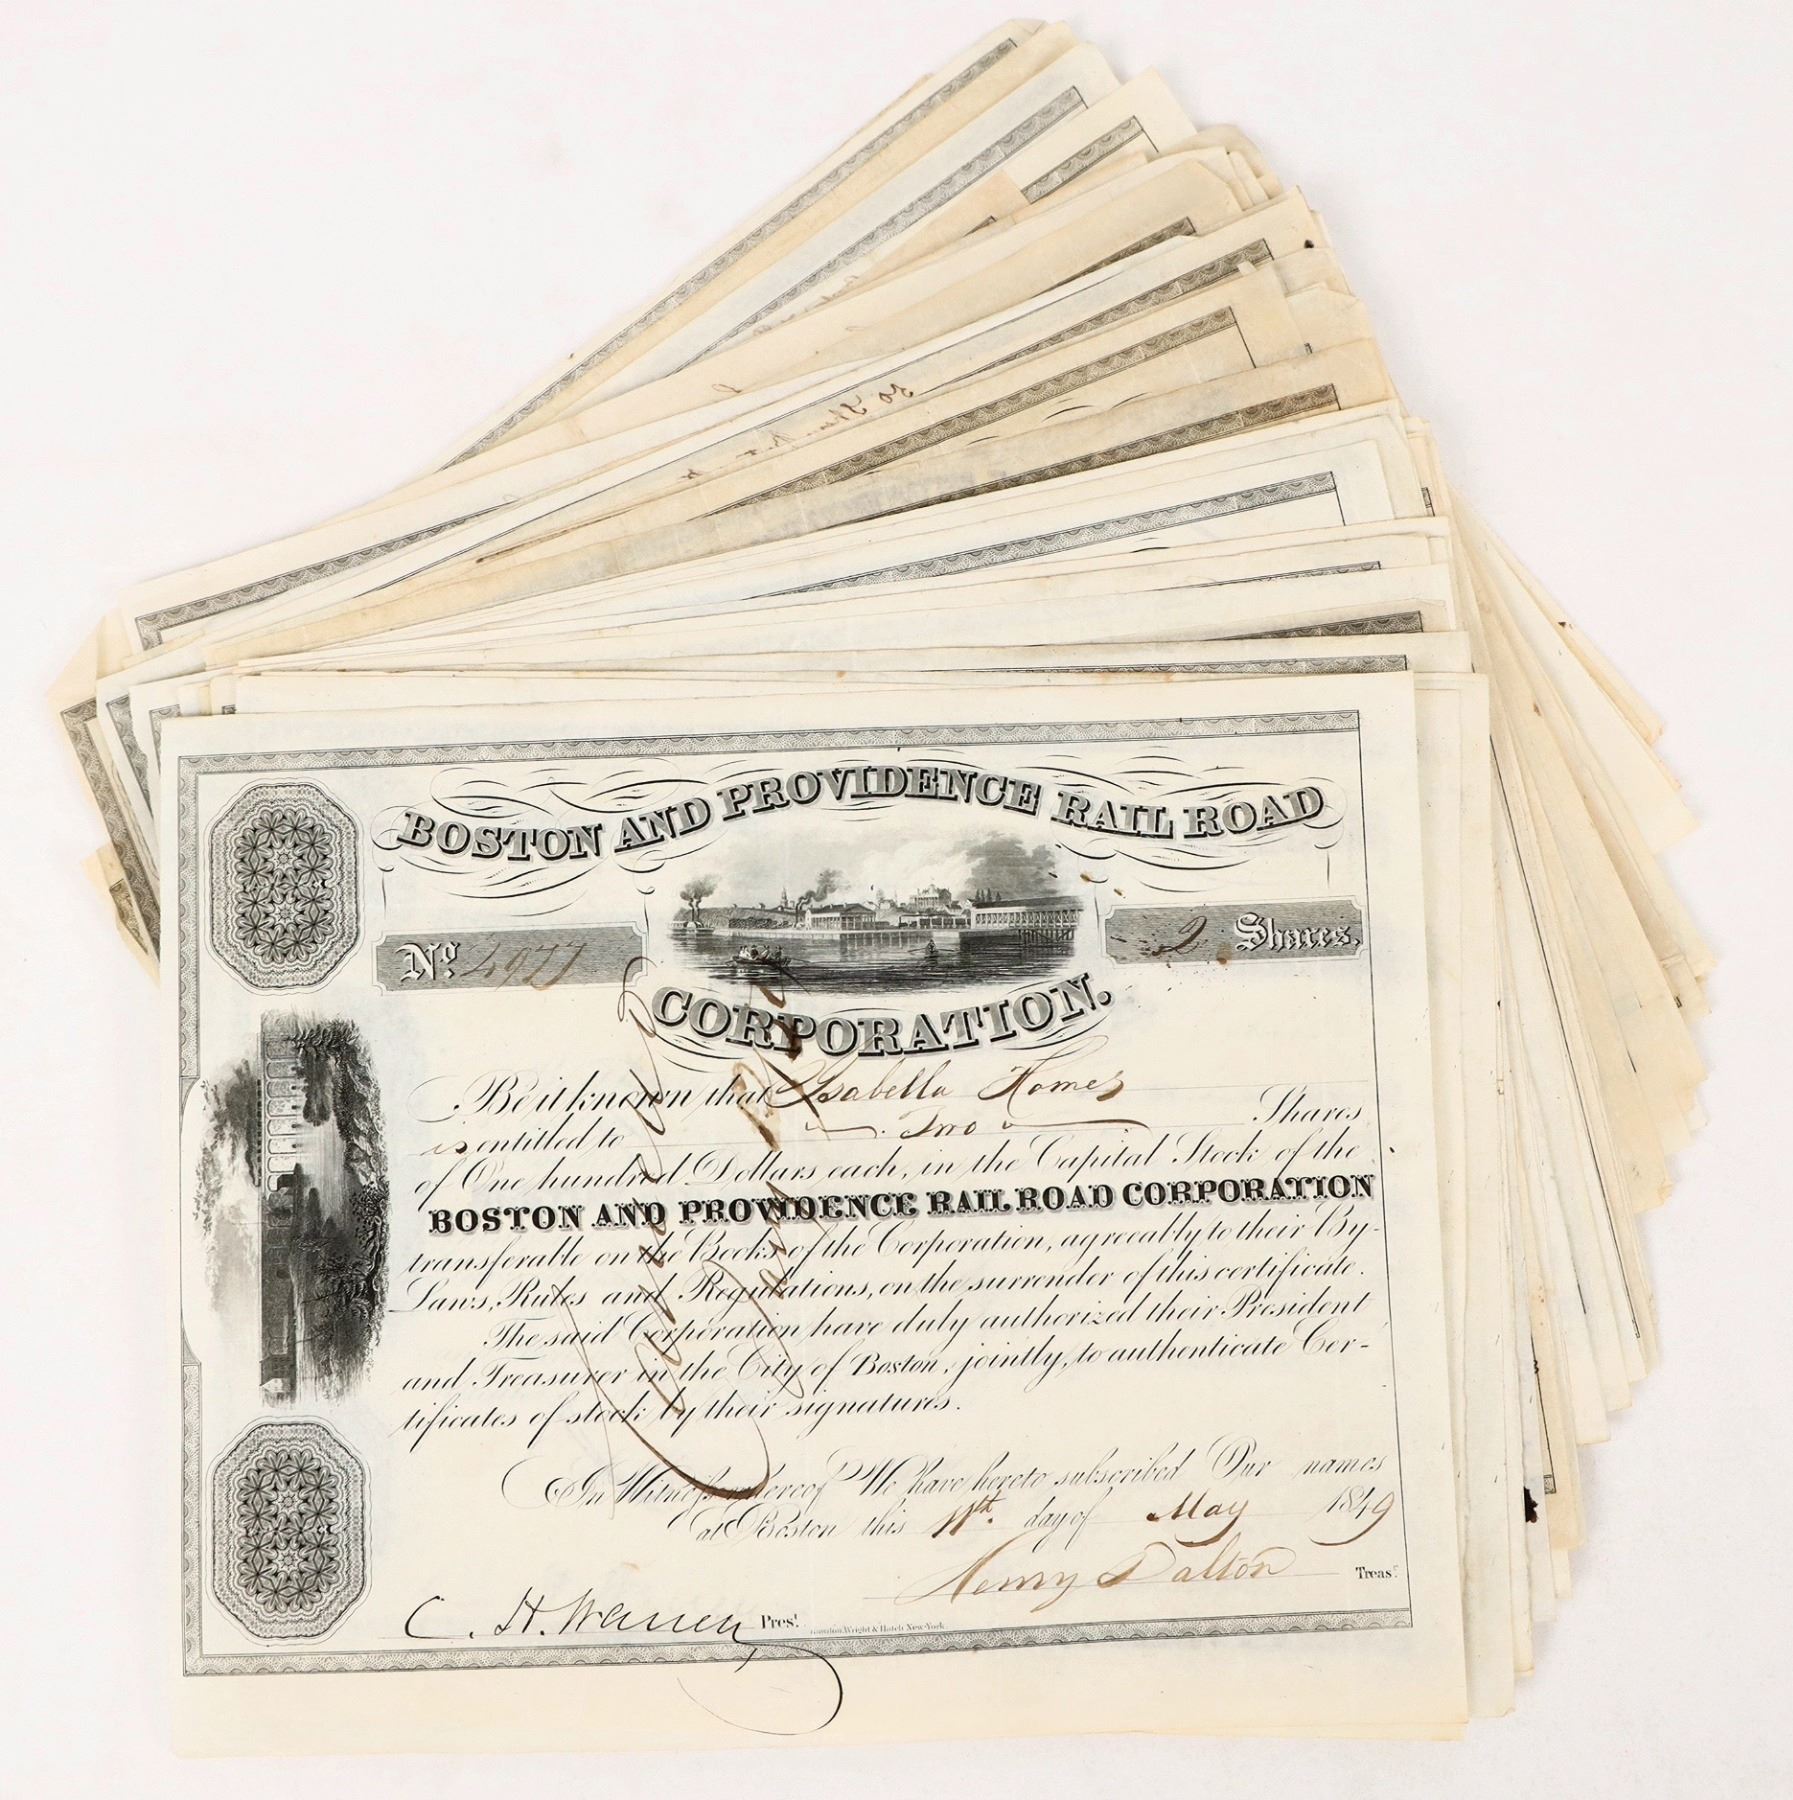 BOSTON AND PROVIDENCE RAIL ROAD
No. 4977
2 Shares.
CORPORATION.
Be it known that Isabella Homes
is entitled to Two Shares
of One hundred Dollars each, in the Capital Stock of the
BOSTON AND PROVIDENCE RAIL ROAD CORPORATION
transferable on the Books of the Corporation, agreeably to their By-
Laws, Rules and Regulations, on the surrender of this certificate.
The said Corporation have duly authorized their President
and Treasurer in the City of Boston, jointly, to authenticate Cer-
tificates of stock by their signatures.
In Witness whereof We have hereto subscribed Our names
at Boston this 11th. day of May 1849
Henry Dalton Treasr.
C. H. Warren Prest.
Wright & Hatch New-York.
Cancelled